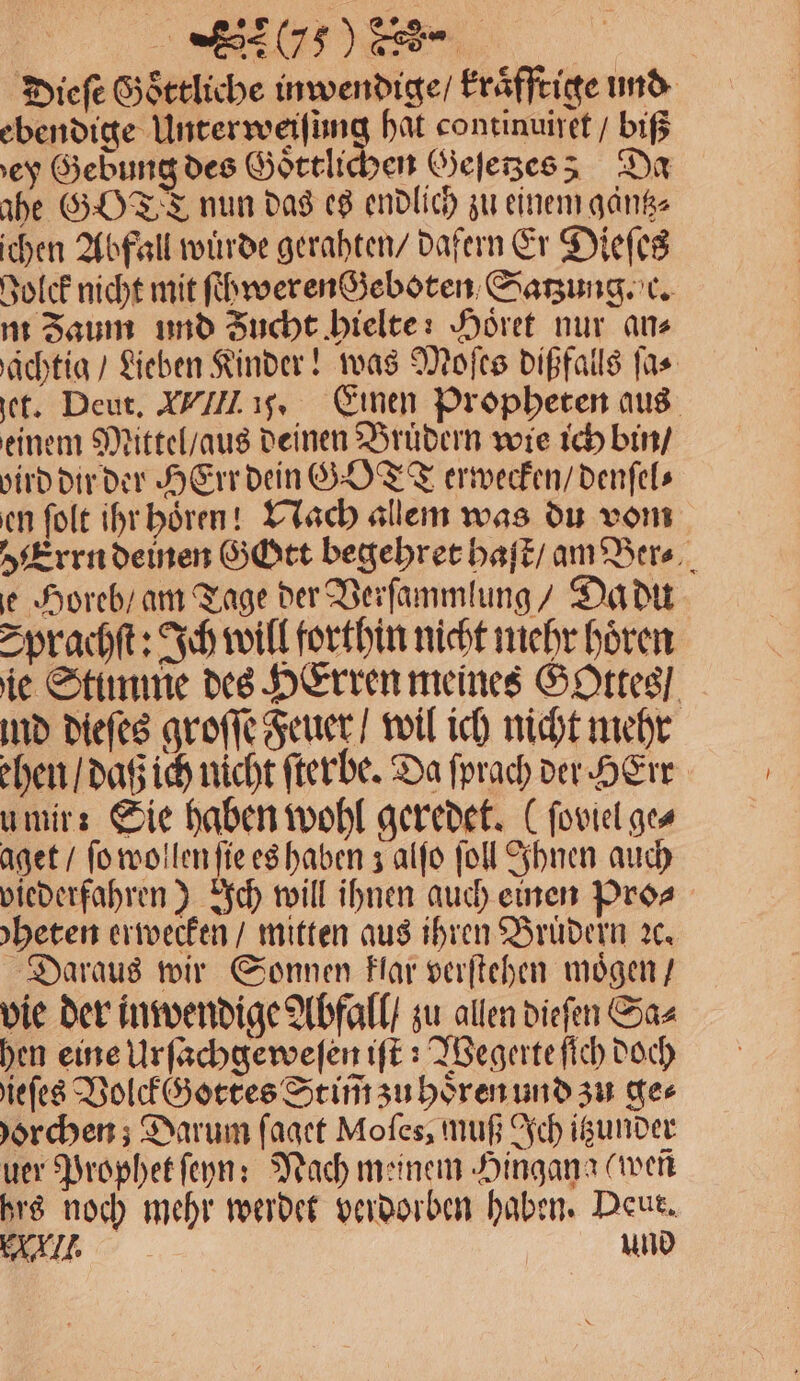 (75)
Dieſe Goͤttliche inwendige/ kraͤfftige und
ebendige Unterweiſung hat continuiret / biß
ey Gebung des Goͤttlichen Geſetzes; Da
ahe GOTT nun das es endlich zu einem gaͤntz⸗
ichen Abfall wuͤrde gerahten/ dafern Er Dieſes
Volck nicht mit ſchweren Geboten, Satzung. ꝛc.
m Zaum und Zucht hielte: Hoͤret nur an⸗
aͤchtig / Lieben Kinder! was Moſes dißfalls ſa⸗
get. Deut. XVIII. 15. Einen Propheten aus
einem Mittel/aus deinen Bruͤdern wie ich bin/
vird dir der HErr dein GOTT erwecken/denſel⸗
en ſolt ihr hoͤren! Nach allem was du vom
HErrn deinen GOtt begehret haſt/ am Ber⸗
e Horeb/ am Tage der Verſammlung / Da du
Sprachſt: Ich will forthin nicht mehr hoͤren
ie Stimme des HErren meines GOttes/
und dieſes groſſe Feuer / wil ich nicht mehr
ehen / daß ich nicht ſterbe. Da ſprach der HErr
u mir: Sie haben wohl geredet. ( ſoviel ge⸗
aget / ſo wollen ſie es haben ; alſo ſoll Ihnen auch
viederfahren ) Ich will ihnen auch einen Pro⸗
pheten erwecken / mitten aus ihren Bruͤdern ꝛc.
Daraus wir Sonnen klar verſtehen moͤgen /
vie der inwendige Abfall/ zu allen dieſen Sa⸗
hen eine Urſach geweſen iſt : Wegerte ſich doch
ieſes Volck Gottes Stim̃ zu hoͤren und zu ge⸗
horchen; Darum ſaget Moſes, muß Ich itzunder
uer Prophet ſeyn: Nach meinem Hingang (weñ
hrs noch mehr werdet verdorben haben. Deut.
XXII. und